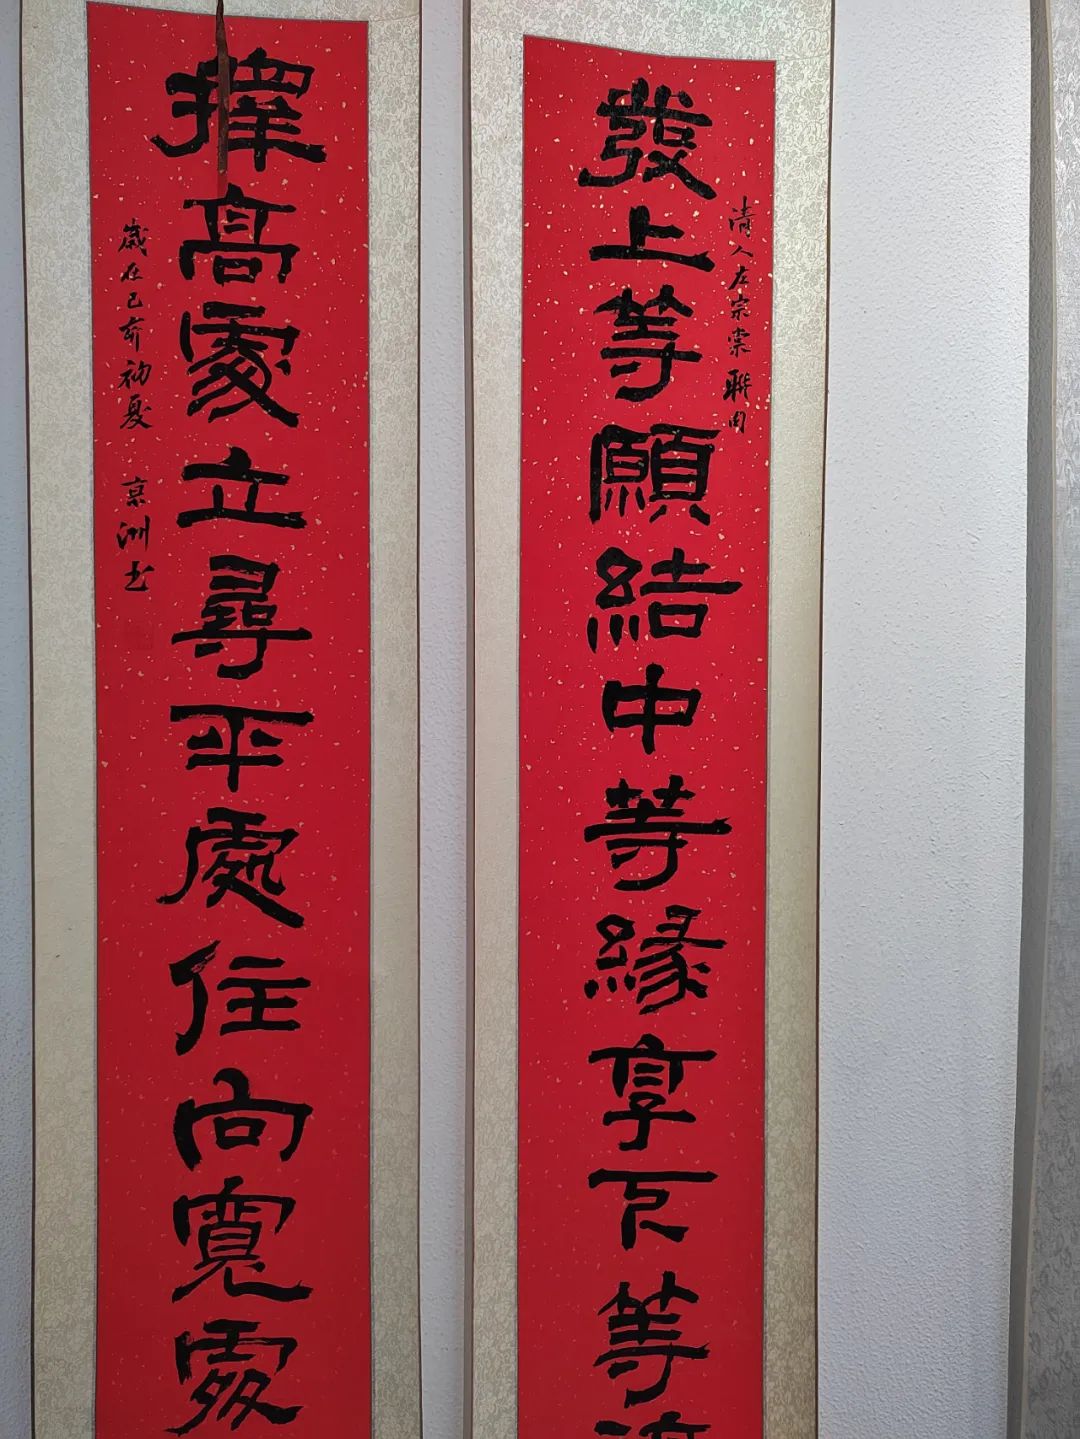 發上等願結中等緣享下等
清人左宗棠聯句
擇高處立尋平處住向寬處
歲在己亥初夏 京洲书